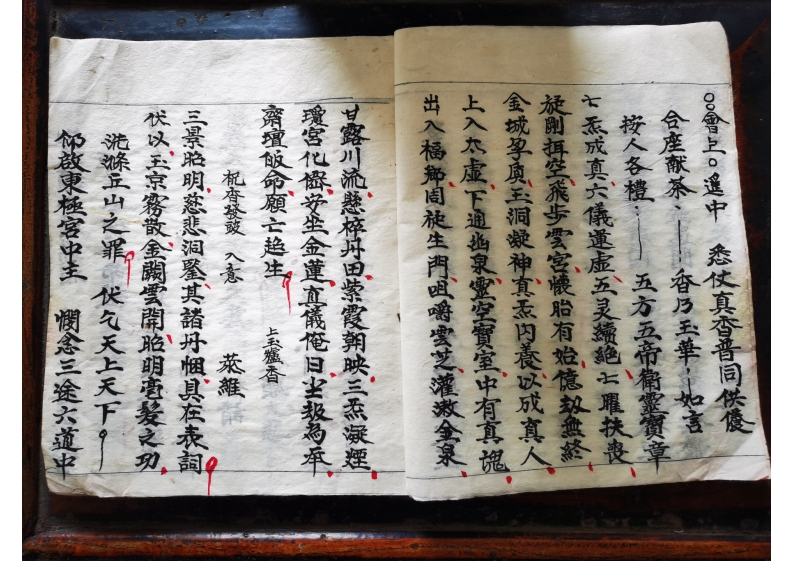 ○○會上○遥中　悉仗真香普同供養
合座献茶︙　香乃玉華︙如言
按人各禮︙　五方五帝衛靈寶章
七炁成真六儀運虛五灵續絶七羅扶喪
旋剛揖空飛步雲宮懷胎有始億劫無終
金城孕質玉洞凝神真炁内養以成真人
上入太虛下通幽泉靈空寶室中有真魂
出入福鄉周旋生門咀嚼雲芝灌漱金泉
甘露川流懸梓丹田紫霞朝映三炁凝煙
瓊宮化僊安坐金蓮直儀俺日坐劫為年
齊壇皈命願亡超生　上玉爐香
祝香發鼓　入意　恭維
三景昭明慈悲洞鑒其諸丹悃具在表詞
伏以玉京霧散金闕雲開昭明亳髮之功
洗滌丘山之罪　伏乞天上天下
仰啟東極宮中主　憫念三途六道中